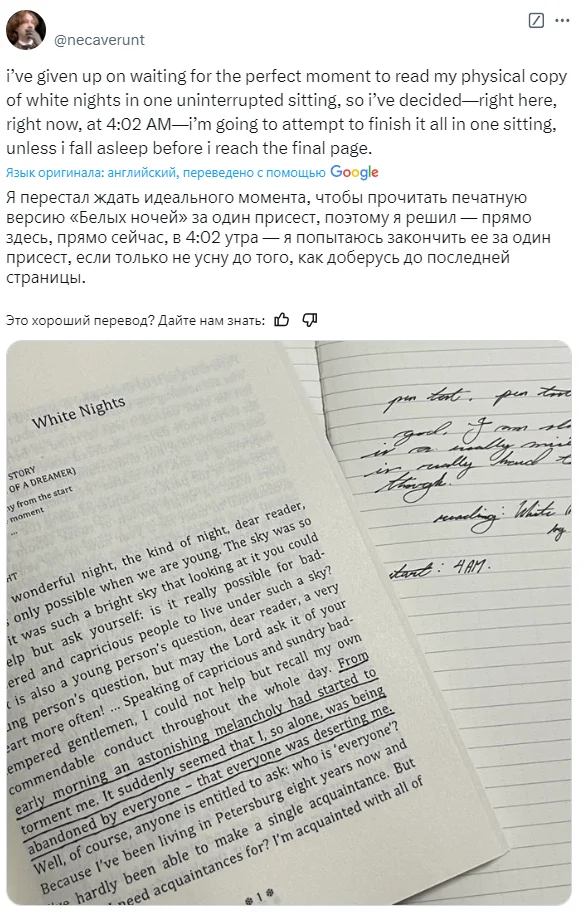 @necaverunt
i've given up on waiting for the perfect moment to read my physical copy
of white nights in one uninterrupted sitting, so i've decided—right here,
right now, at 4:02 AM—i'm going to attempt to finish it all in one sitting,
unless i fall asleep before i reach the final page.
Язык оригинала: английский, переведено с помощью Google
Я перестал ждать идеального момента, чтобы прочитать печатную
версию «Белых ночей» за один присест, поэтому я решил — прямо
здесь, прямо сейчас, в 4:02 утра — я попытаюсь закончить ее за один
присест, если только не усну до того, как доберусь до последней
страницы.
Это хороший перевод? Дайте нам знать:
White Nights
STORY
OF A DREAMER)
y from the start
moment
...
HT
wonderful night, the kind of night, dear reader,
only possible when we are young. The sky was so
it was such a bright sky that looking at it you could
elp but ask yourself: is it really possible for bad-
ered and capricious people to live under such a sky?
t is also a young person's question, dear reader, a very
ung person's question, but may the Lord ask it of your
eart more often! ... Speaking of capricious and sundry bad-
empered gentlemen, I could not help but recall my own
commendable conduct throughout the whole day. From
early morning an astonishing melancholy had started to
torment me. It suddenly seemed that I, so alone, was being
abandoned by everyone – that everyone was deserting me.
Well, of course, anyone is entitled to ask: who is 'everyone'?
Because I've been living in Petersburg eight years now and
I've hardly been able to make a single acquaintance. But
I need acquaintances for? I'm acquainted with all of
1
pen test. pen
good. I am
is a really
is really hard
though.
reading: White
by
start: 4AM.